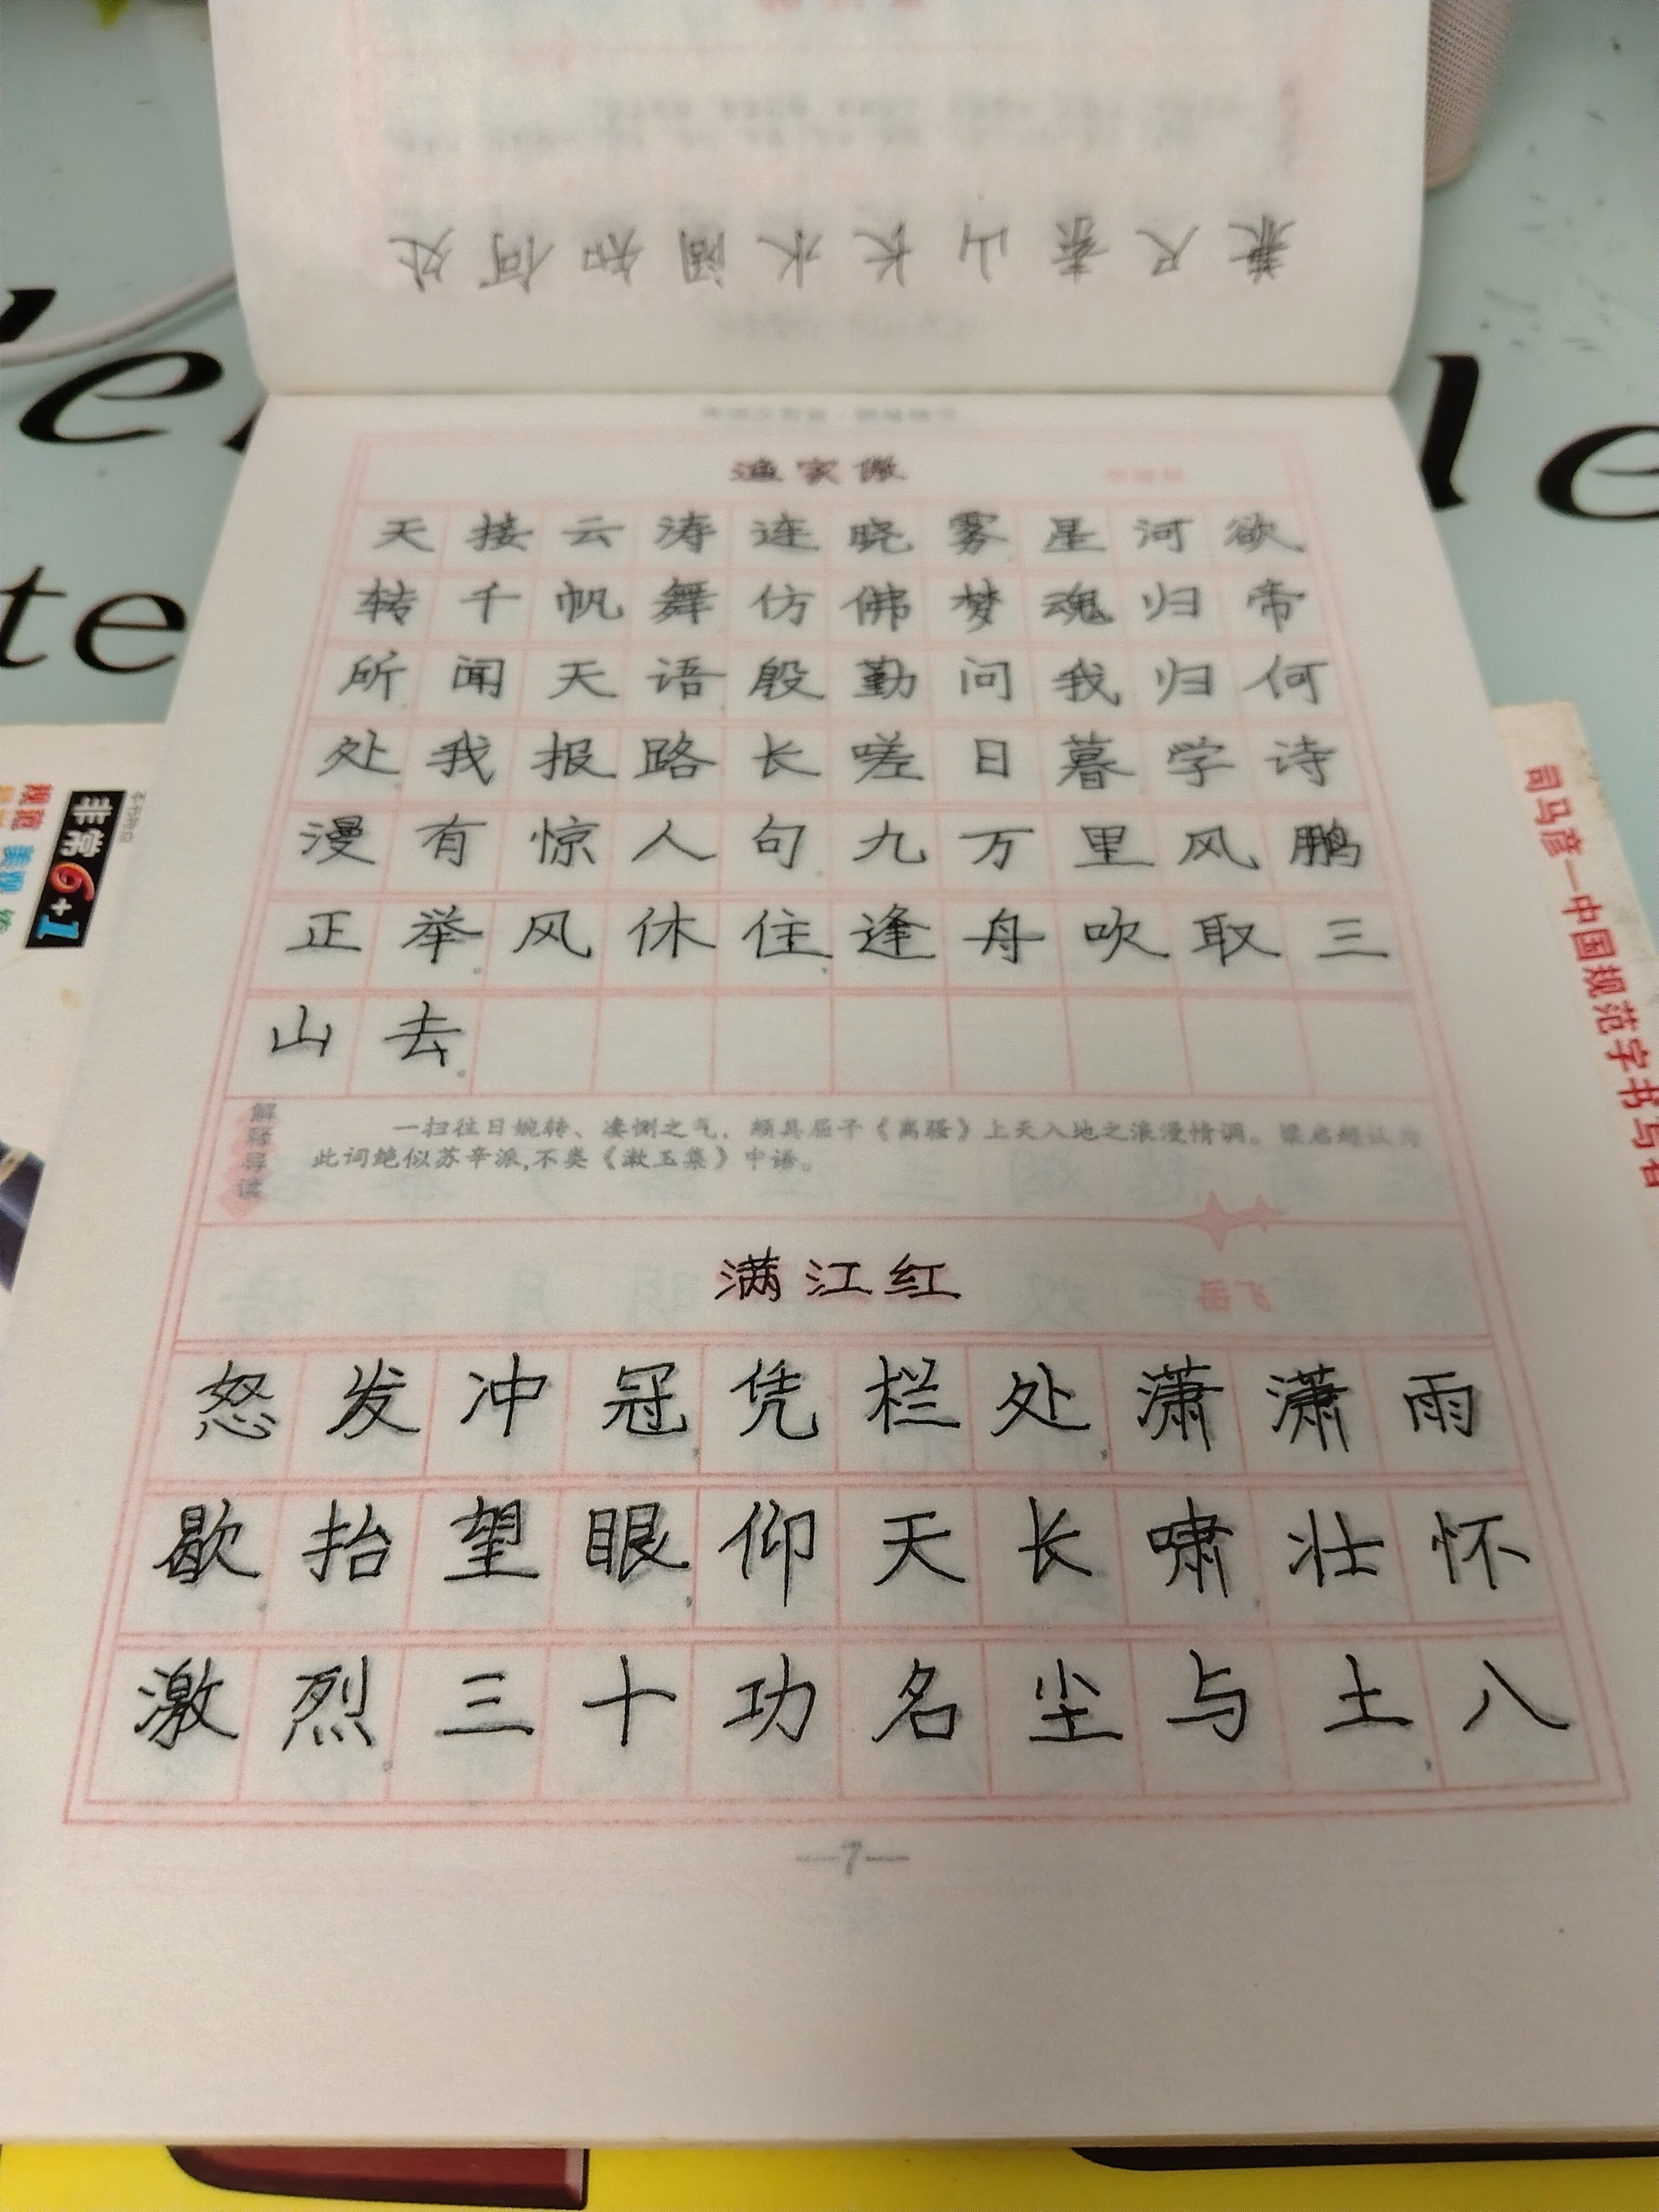 兼尺素山长水阔知何处
渔家傲
天接云涛连晓雾星河欲
转千帆舞仿佛梦魂归帝
所闻天语殷勤问我归何
处我报路长嗟日暮学诗
漫有惊人句九万里风鹏
正举。风休住。逢舟吹取三
山去。
解释导读
一扫往日婉转、凄恻之气,颇具屈子《离骚》上天入地之浪漫情调。梁启超认为
此词绝似苏辛派,不类《漱玉集》中语。
满江红
岳飞
怒发冲冠,凭栏处,潇潇雨
歇。抬望眼,仰天长啸,壮怀
激烈。三十功名尘与土,八
—7—
非常6+1
规范
美观
司马彦—中国规范字书写者